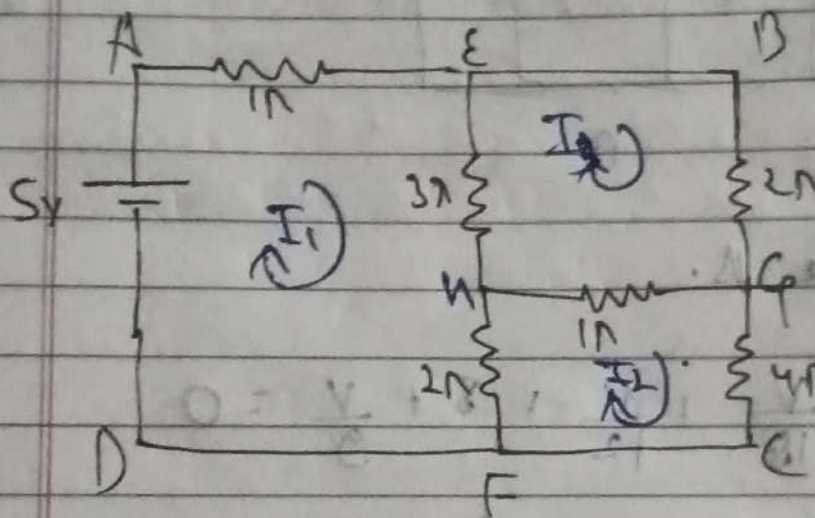 A E B
1Ω
5v I₁ 3Ω I 2Ω
H 1Ω G
2Ω I2 4Ω
D F C